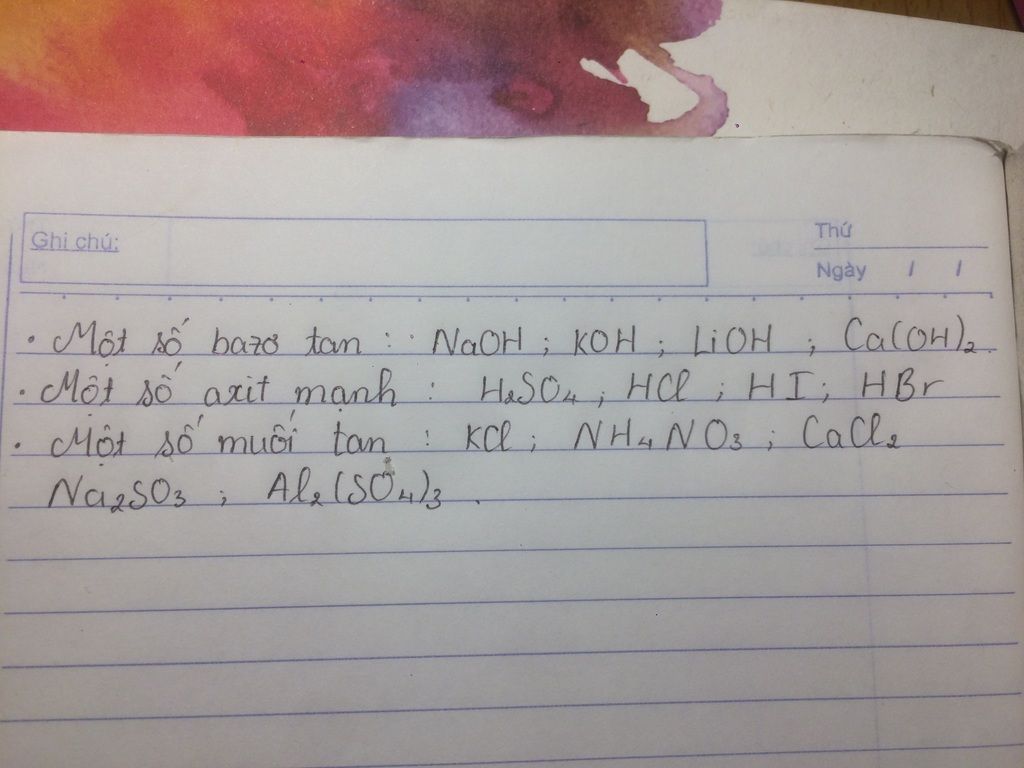 Ghi chú:
Thứ
Ngày / /
. Một số bazơ tan : NaOH ; KOH ; LiOH ; Ca(OH)₂.
. Một số axit mạnh : H₂SO₄ ; HCl ; HI ; HBr
. Một số muối tan : KCl ; NH₄NO₃ ; CaCl₂
Na₂SO₃ ; Al₂(SO₄)₃ .